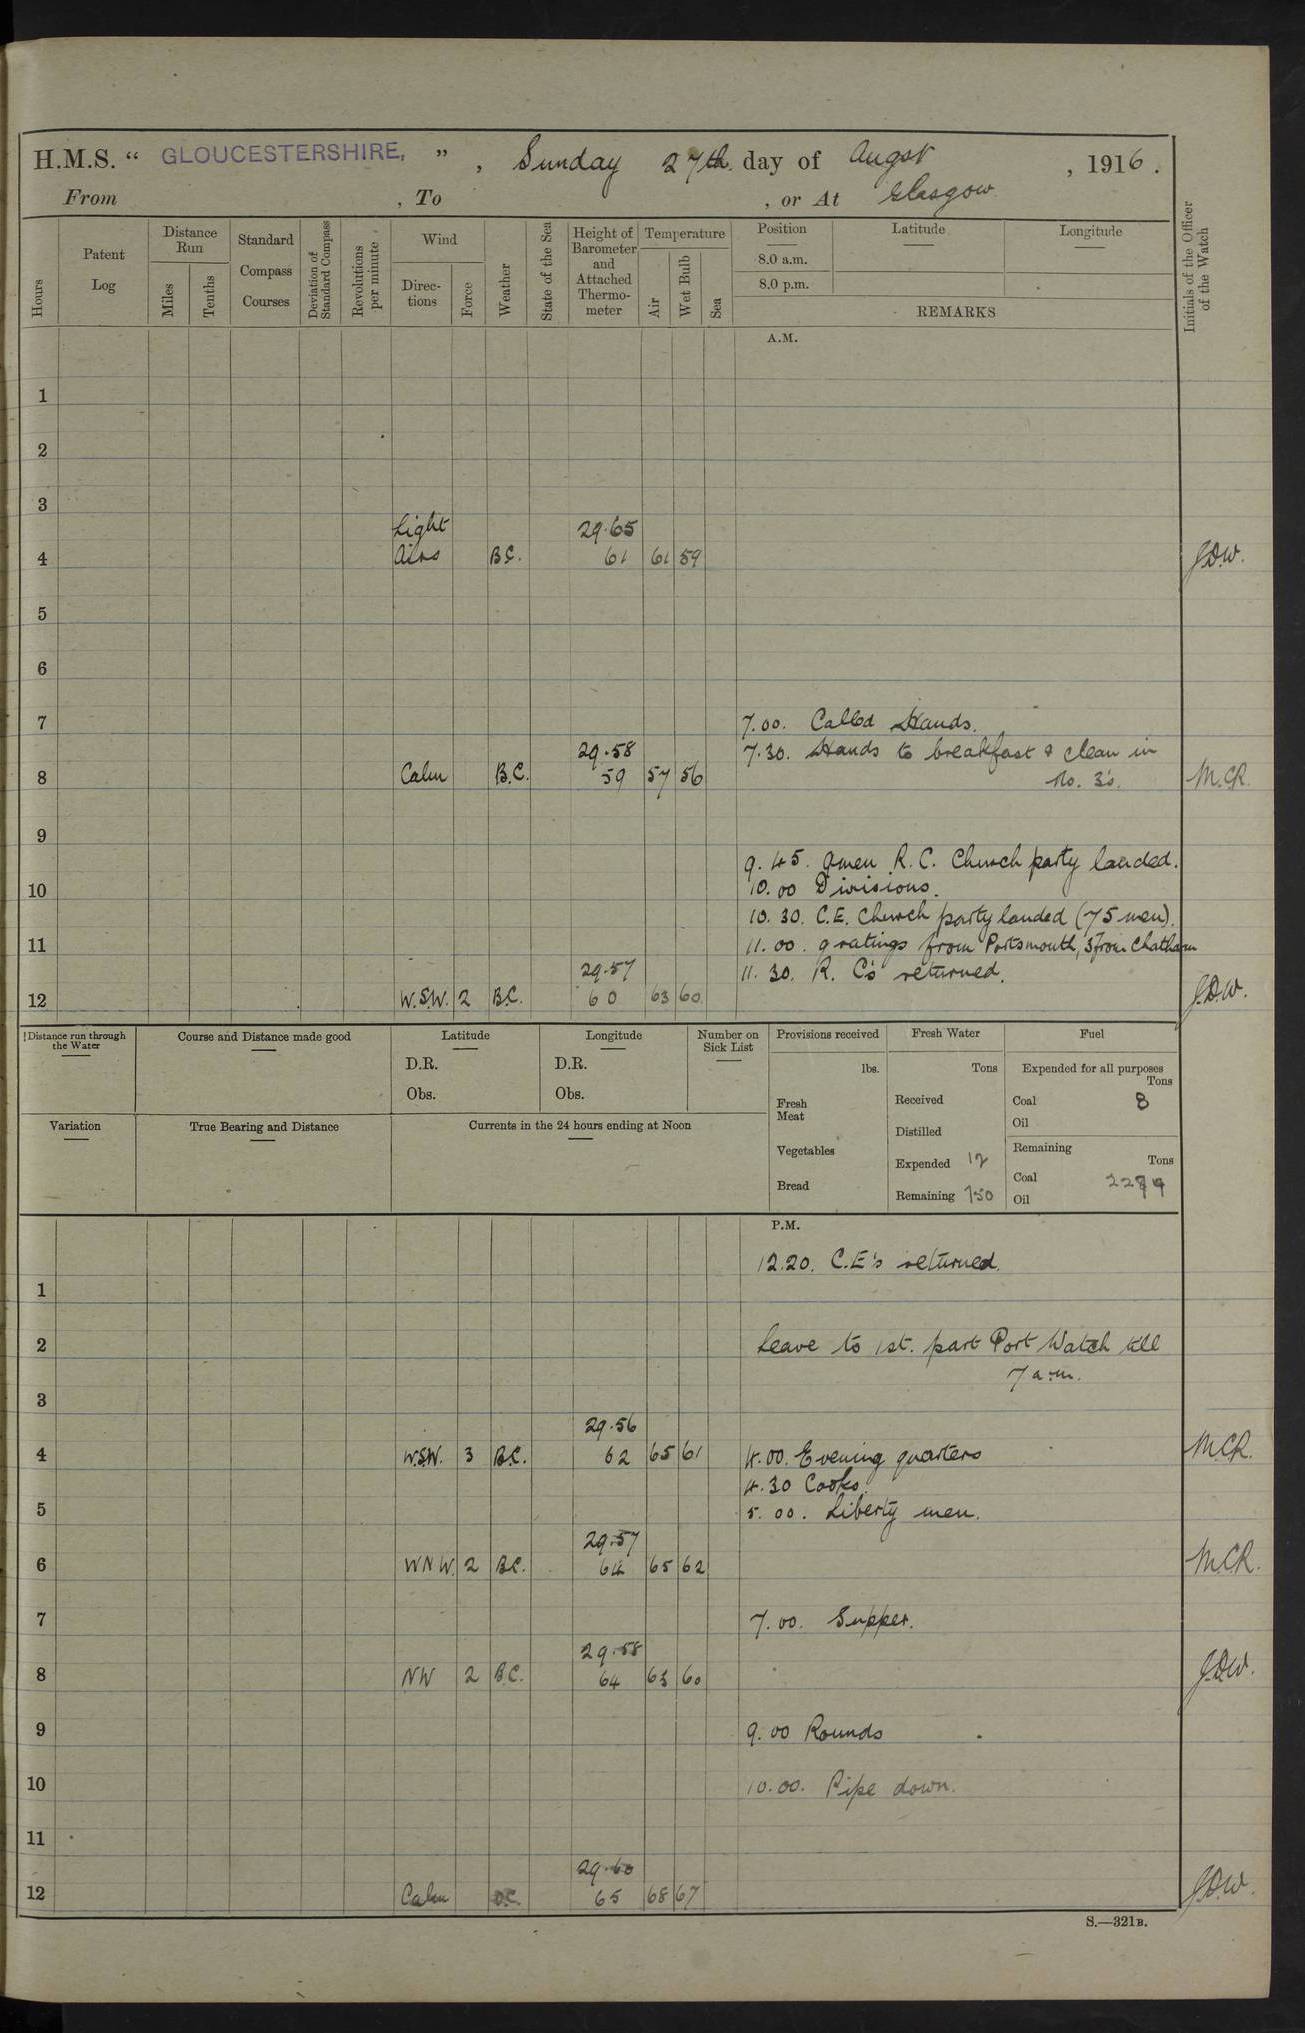 H.M.S. “ GLOUCESTERSHIRE, ” , Sunday 27th day of Augst , 1916.
From , To , or At Glasgow
Hours
Patent Log
Distance Run
Miles
Tenths
Standard Compass Courses
Deviation of Standard Compass
Revolutions per minute
Wind
Directions
Force
Weather
State of the Sea
Height of Barometer and Attached Thermometer
Temperature
Air
Wet Bulb
Sea
Position
8.0 a.m.
8.0 p.m.
Latitude
Longitude
REMARKS
Initials of the Officer of the Watch
A.M.
1
2
3
Light 29.65
4 Airs B.C. 61 61 59 J.D.W.
5
6
7 7.00. Called Hands.
29.58 7.30. Hands to breakfast & clean in
8 Calm B.C. 59 57 56 No. 3's. M.C.R.
9
9.45. 9 men R.C. Church party landed.
10 10.00 Divisions.
10.30. C.E. Church party landed (75 men).
11 11.00. 9 ratings from Portsmouth, 3 from Chatham
29.57 11.30. R.C's returned.
12 W.S.W. 2 B.C. 60 63 60 J.D.W.
Distance run through the Water
Course and Distance made good
Latitude
D.R.
Obs.
Longitude
D.R.
Obs.
Number on Sick List
Provisions received
lbs.
Fresh Meat
Vegetables
Bread
Fresh Water
Tons
Received
Distilled
Expended 12
Remaining 150
Fuel
Expended for all purposes
Tons
Coal 8
Oil
Remaining
Tons
Coal
Oil
Variation
True Bearing and Distance
Currents in the 24 hours ending at Noon
P.M.
12.20. C.E's returned.
1
2 Leave to 1st. part Port Watch till
7 a.m.
3
29.56
4 W.S.W. 3 B.C. 62 65 61 4.00. Evening quarters M.C.R.
4.30 Cooks.
5 5.00. Liberty men.
29.57
6 WNW. 2 B.C. 64 65 62 M.C.R.
7 7.00. Supper.
29.58
8 NW 2 B.C. 64 63 60 J.D.W.
9 9.00 Rounds
10 10.00. Pipe down.
11
29.60
12 Calm 65 68 67 J.D.W.
S.—321B.